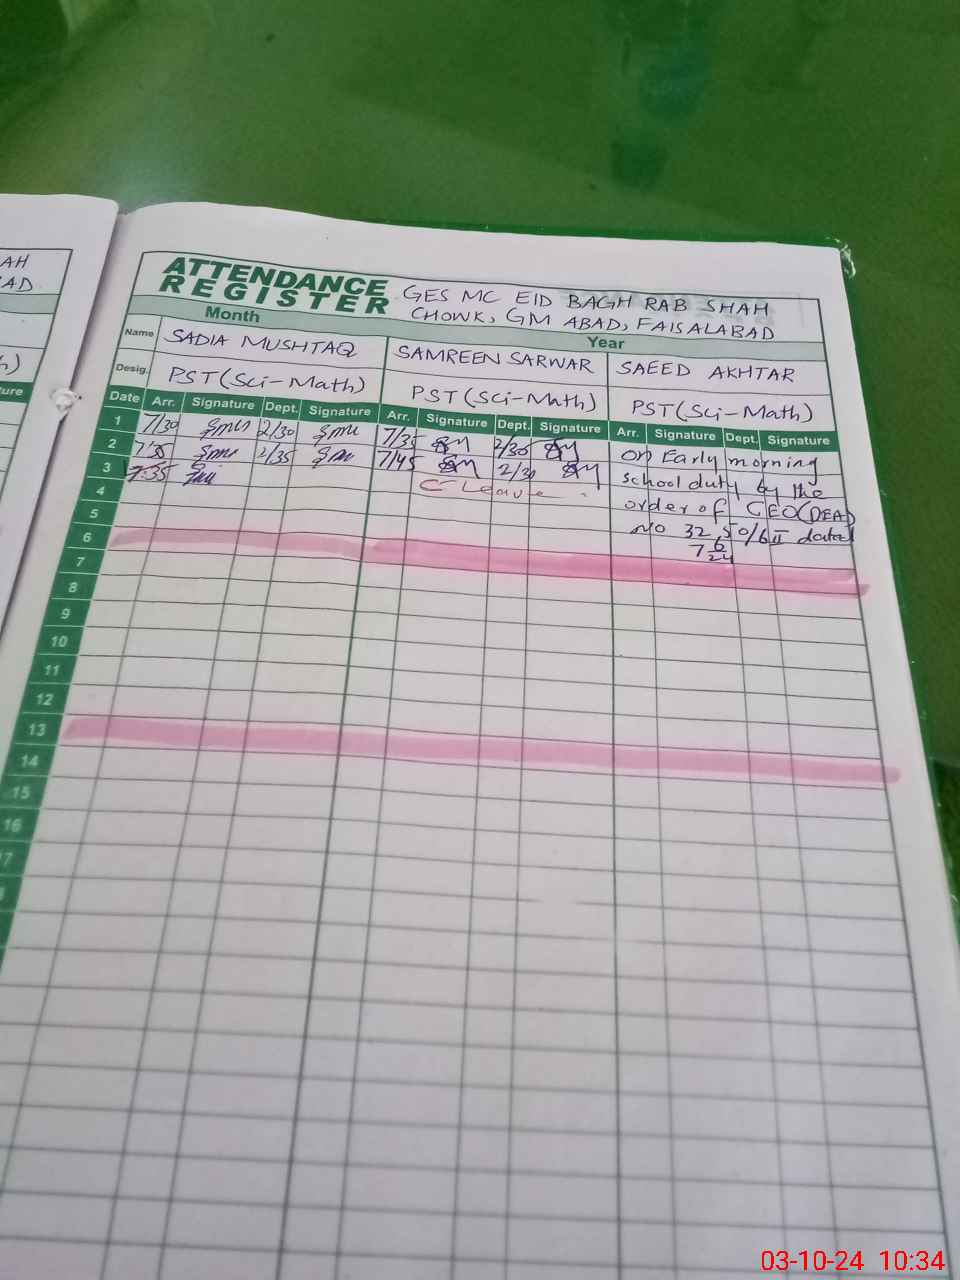 AH
AD
ATTENDANCE
REGISTER
GES MC EID BAGH RAB SHAH
CHOWK, GM ABAD, FAISALABAD
Month
Year
Name
SADIA MUSHTAQ
SAMREEN SARWAR
SAEED AKHTAR
Desig.
PST (Sci-Math)
PST (Sci-Math)
PST (Sci-Math)
ure
Date Arr. Signature Dept. Signature Arr. Signature Dept. Signature Arr. Signature Dept. Signature
1 7/30 2/30 7/35 2/30 on Early morning
2 2/35 7/45 2/30 school duty by the
3 7:35 C-Leave order of CEO(DEA)
4 No 32,50/6II dated
5 7 6/24
6
7
8
9
10
11
12
13
14
15
16
03-10-24 10:34